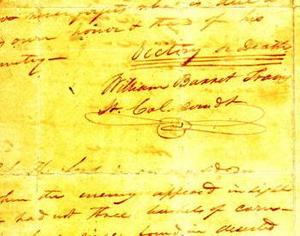 own honor & that of his
country —
Victory or Death
William Barret Travis
Lt. Col. comdt
P.S. The Lord is on our side
When the enemy appeared in sight
had not three bushels of corn—
found in deserted